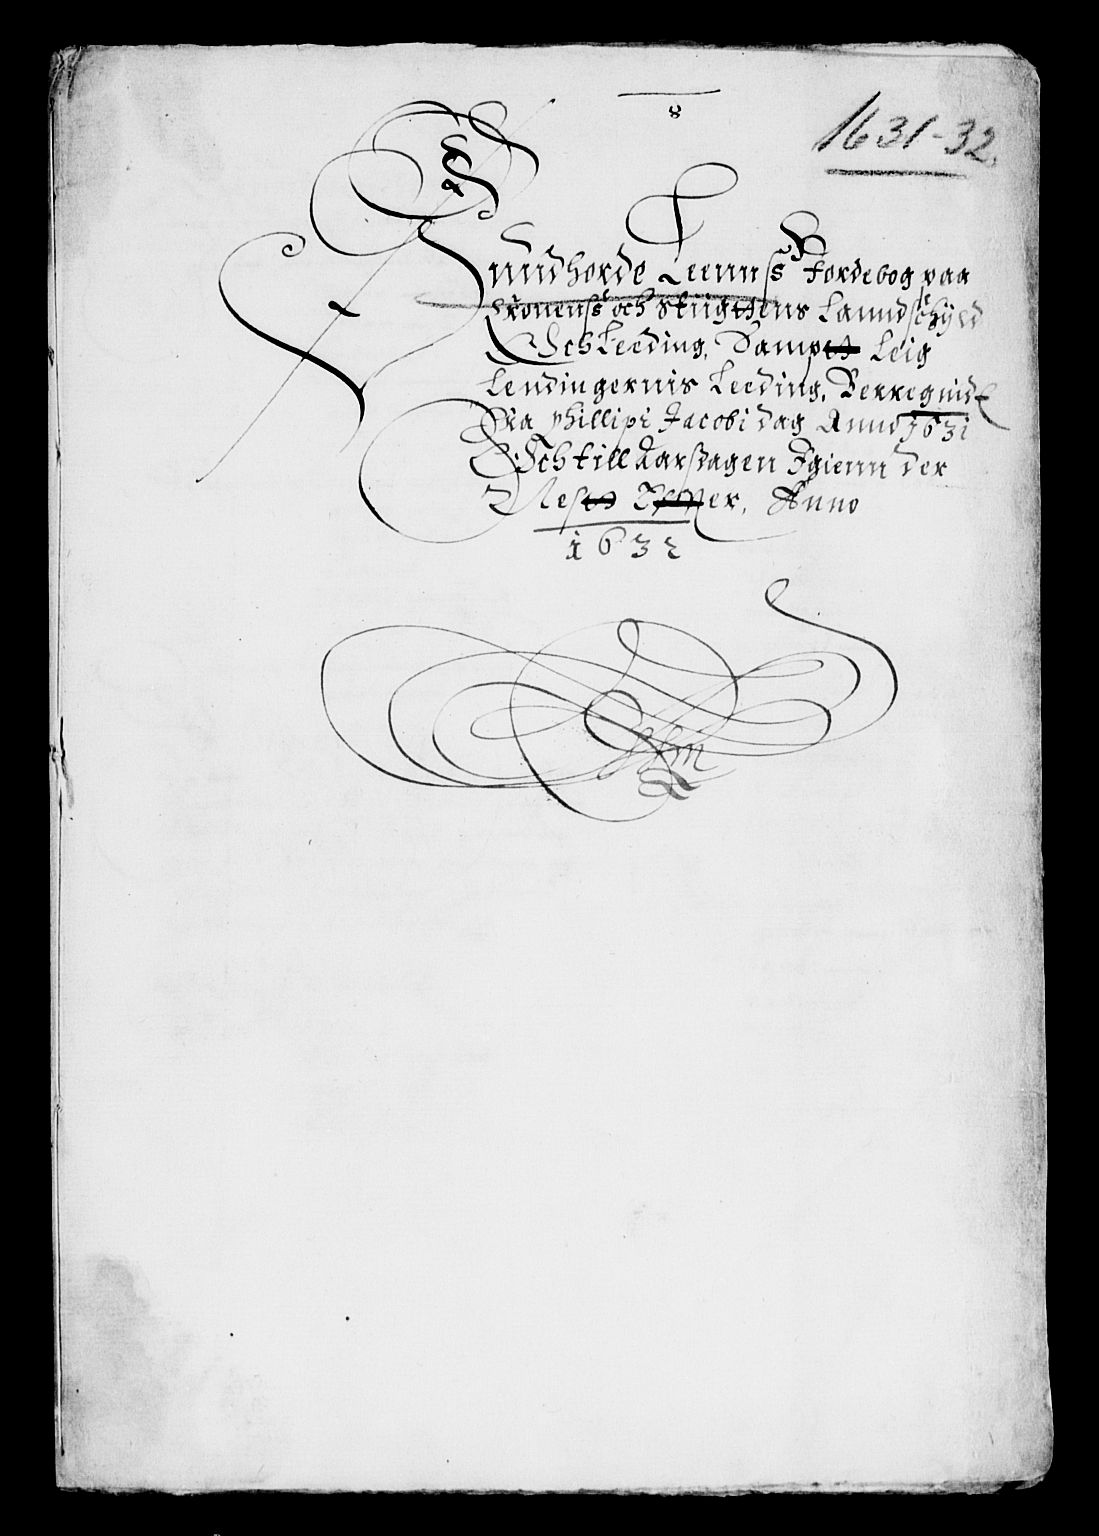 8
1631-32.
Sundhorde Leenns Jordebog paa
Kronens och Stiigttens Lanndschyld
Och Leeding, Sampt Leig
Lendingernis Leeding, Berregnid
Fra Phillipi Jacobi dag Anno 1631
Och till Aarsdagen Igienn der
Nest Epter, Anno
1632